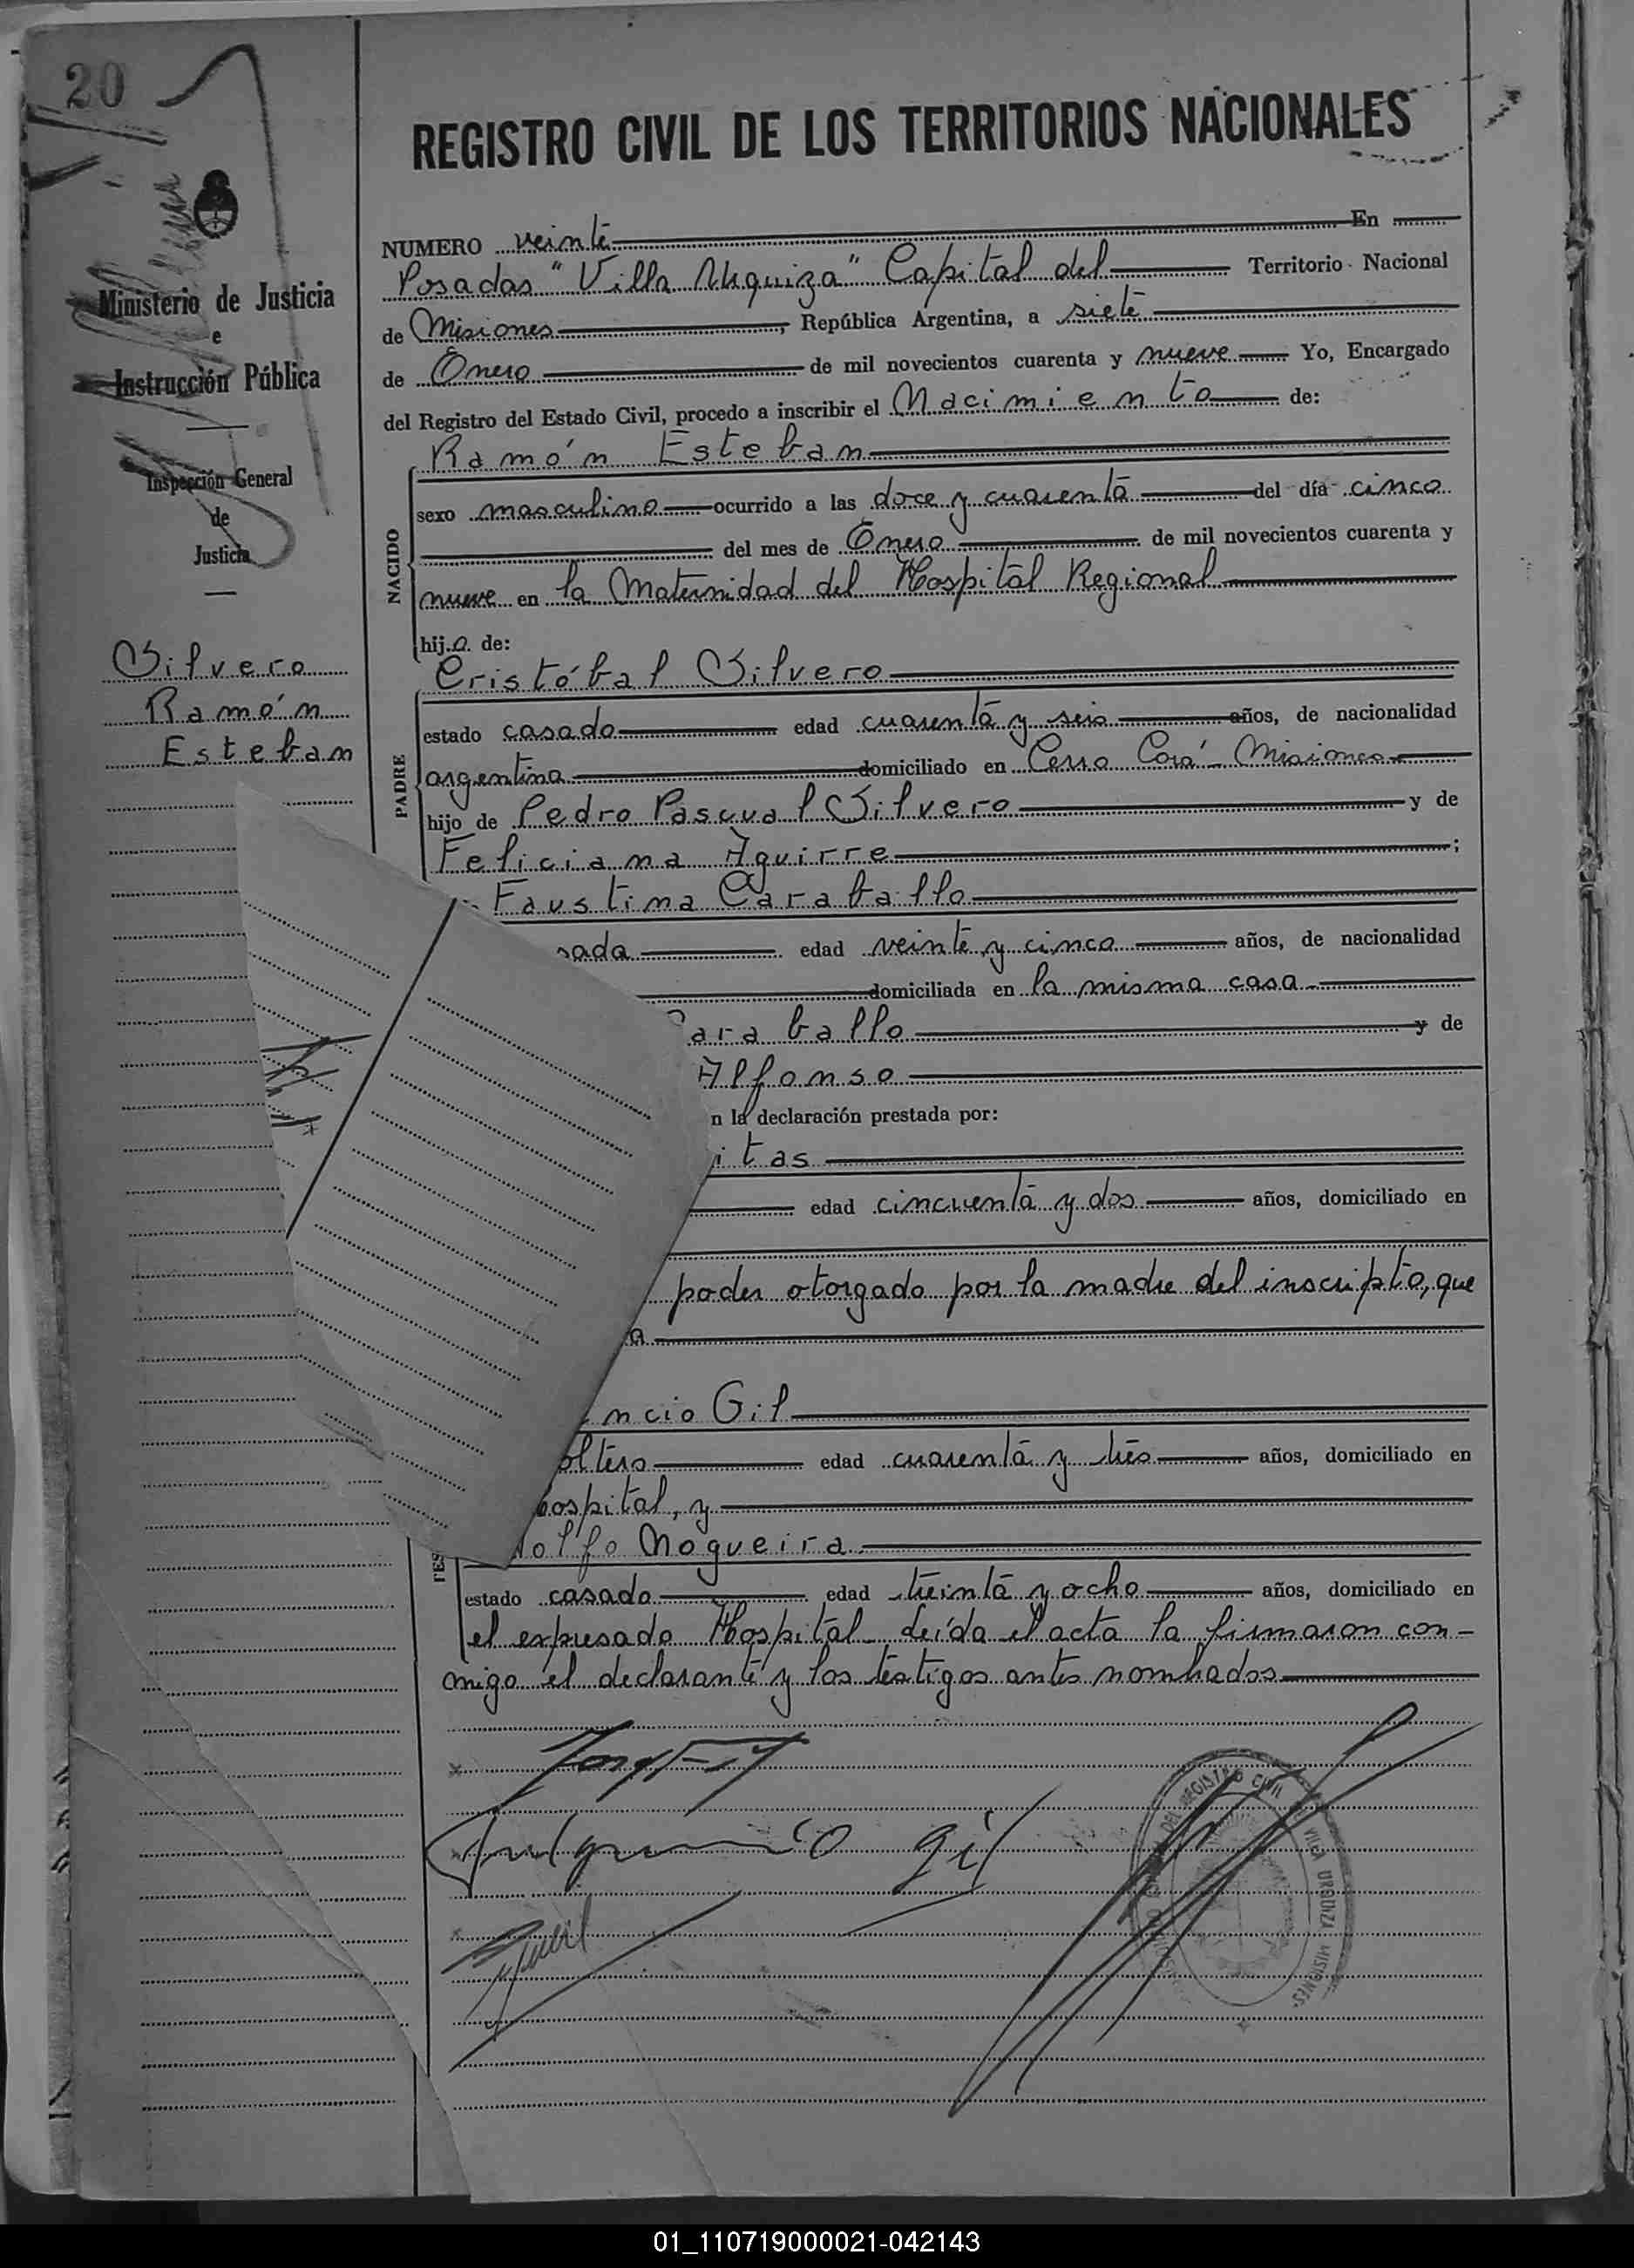 20
REGISTRO CIVIL DE LOS TERRITORIOS NACIONALES
Ministerio de Justicia
e
Instrucción Pública
Inspección General
de
Justicia
Silvero
Ramón
Esteban
NUMERO veinte En
Posadas "Villa Urquiza" Capital del Territorio Nacional
de Misiones, República Argentina, a siete
de Enero de mil novecientos cuarenta y nueve Yo, Encargado
del Registro del Estado Civil, procedo a inscribir el Nacimiento de:
NACIDO
Ramón Esteban
sexo masculino ocurrido a las doce y cuarenta del día cinco
del mes de Enero de mil novecientos cuarenta y
nueve en la Maternidad del Hospital Regional
hijo de:
PADRE
Cristóbal Silvero
estado casado edad cuarenta y seis años, de nacionalidad
argentina domiciliado en Cerro Corá - Misiones
hijo de Pedro Pascual Silvero y de
Feliciana Aguirre;
Faustina Caraballo
sada edad veinte y cinco años, de nacionalidad
domiciliada en la misma casa
Caraballo y de
Alfonso
n la declaración prestada por:
itas
edad cincuenta y dos años, domiciliado en
poder otorgado por la madre del inscripto, que
a
ncio Gil
oltero edad cuarenta y tres años, domiciliado en
Hospital, y
olfo Nogueira
TES
estado casado edad treinta y ocho años, domiciliado en
el expresado Hospital. Leída el acta la firmaron con-
migo el declarante y los testigos antes nombrados
Gil
DEL REGISTRO CIVIL
VILLA URQUIZA MISIONES
01_110719000021-042143